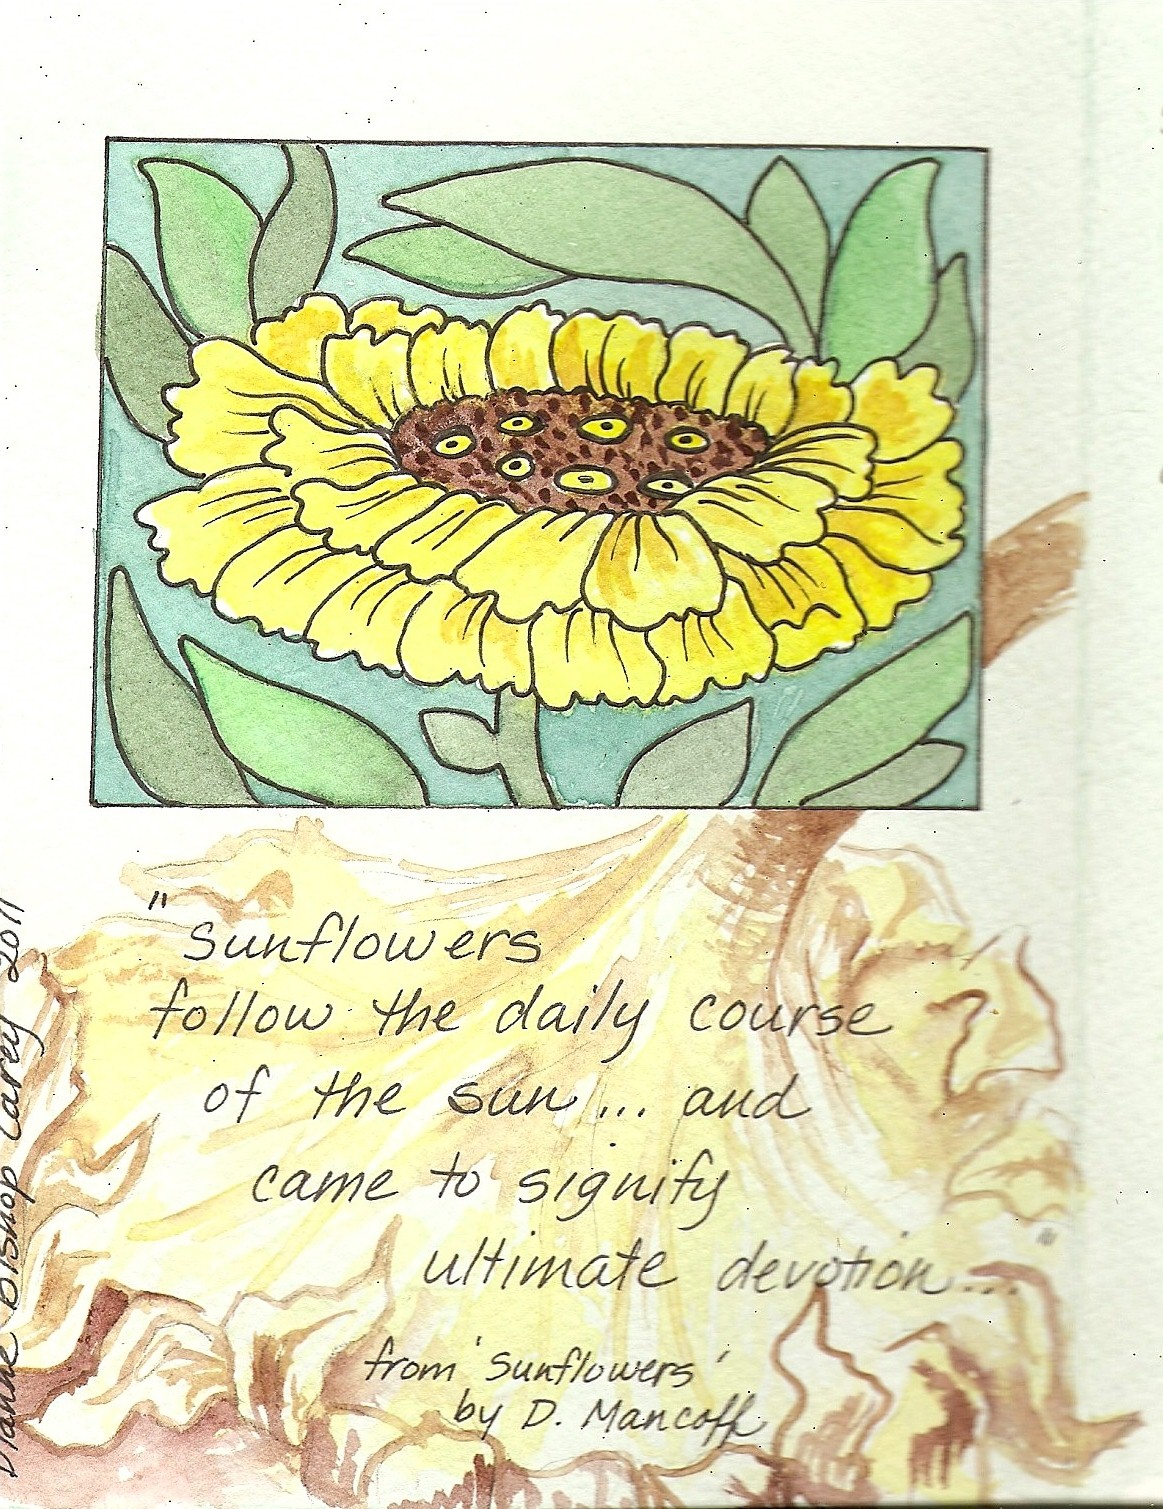 "
Sunflowers
follow the daily course
of the sun... and
came to signify
ultimate devotion..."
from 'Sunflowers'
by D. Mancoff
Dianne Bishop Carey 2011